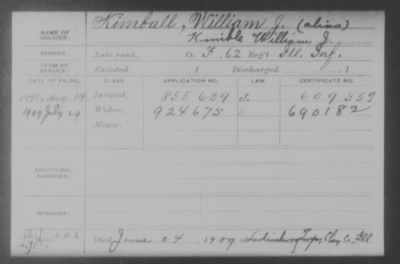 Kimball, William J. (alias)
NAME OF SOLDIER:
Kimble William J.
SERVICE: Late rank, Co. F, 62 Reg't Ill. Inf.
TERM OF SERVICE: Enlisted , 1 Discharged , 1
DATE OF FILING. CLASS. APPLICATION NO. LAW. CERTIFICATE NO.
1890, Invalid, 855639 609359
1909 July 29 Widow, 924675 690182
Minor,
ADDITIONAL SERVICES:
REMARKS:
Died June 24, 1909 Clay Co. Ill